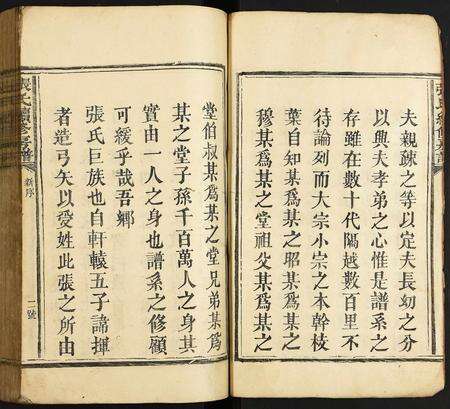 夫親疎之等以定夫長幼之分
以興夫孝弟之心惟是譜系之
存雖在數十代隔越數百里不
待論列而大宗小宗之本幹枝
葉自知某爲某之昭某爲某之
穆某爲某之堂祖父某爲某之
堂伯叔某爲某之堂兄弟某爲
某之堂子孫千百萬人之身其
實由一人之身也譜系之修顧
可緩乎哉吾鄉
張氏巨族也自軒轅五子諱揮
者造弓矢以爰姓此張之所由
張氏續修
新序
二號